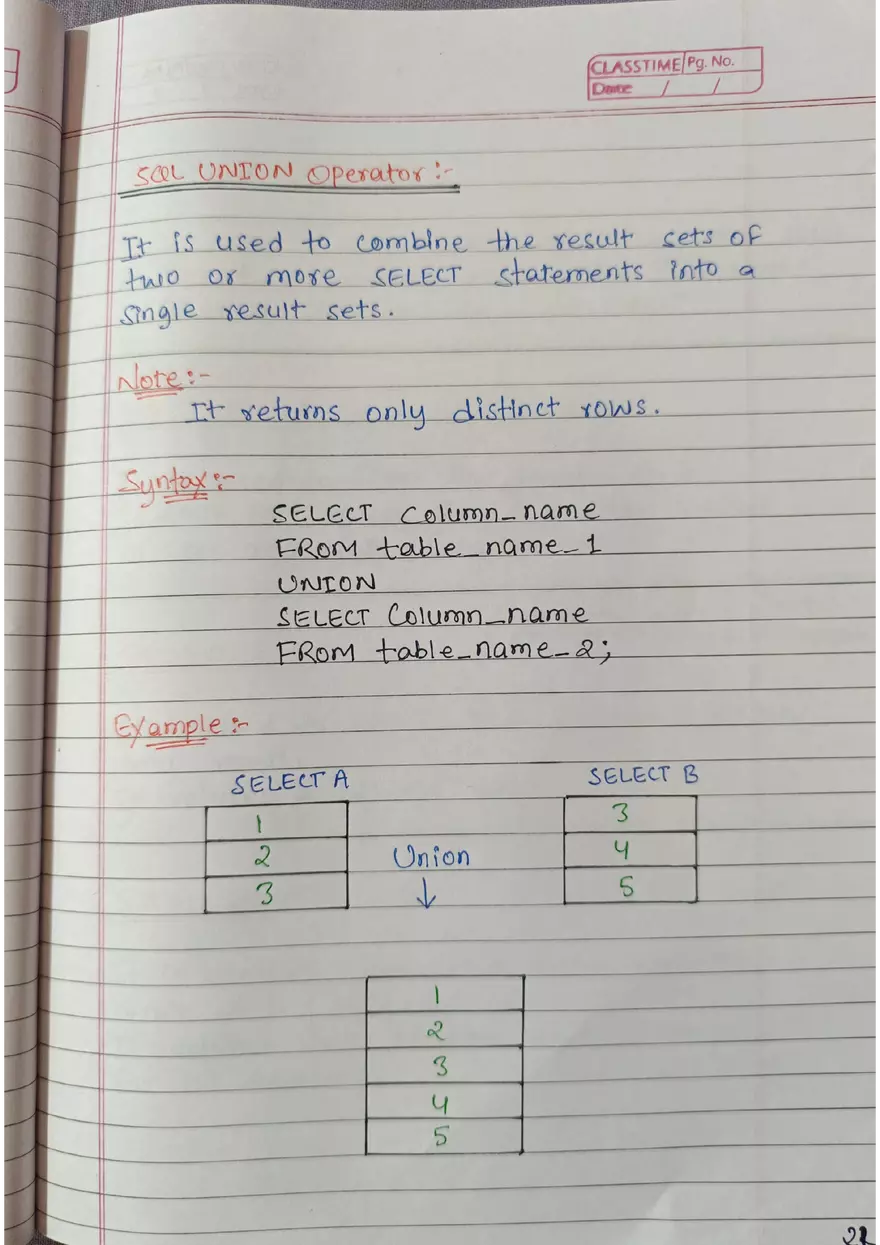 CLASSTIME Pg. No.
Date / /
SQL UNION Operator :-
It is used to combine the result sets of
two or more SELECT statements into a
single result sets.
Note :-
It returns only distinct rows.
Syntax :-
SELECT Column_name
FROM table_name_1
UNION
SELECT Column_name
FROM table_name_2;
Example :-
SELECT A SELECT B
1 3
2 Union 4
3 ↓ 5
1
2
3
4
5